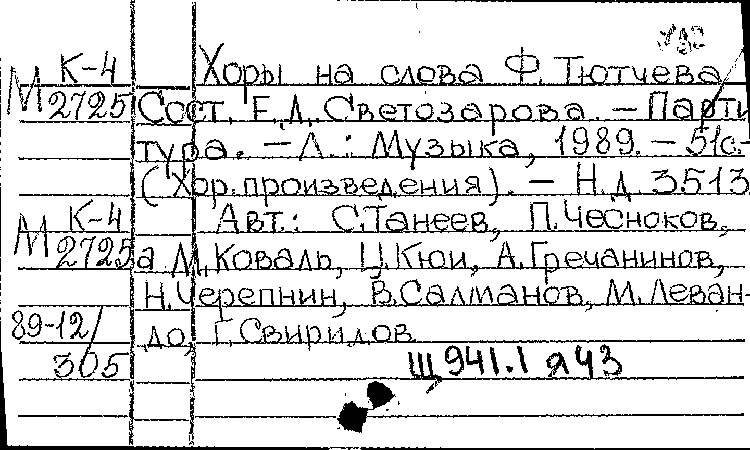 К-4 Хоры на слова Ф. Тютчева /
М 2725 Сост. Е.Д. Светозарова. — Парти
тура. — Л.: Музыка, 1989. — 51с.-
(Хор. произведения). — Н.д. 3513
К-4 Авт.: С.Танеев, П.Чесноков,
М 2725а М.Коваль, Ц.Кюи, А.Гречанинов,
Н.Черепнин, В.Салманов, М.Леван-
89-12/ до, Г.Свиридов
305 Щ941.1 я43